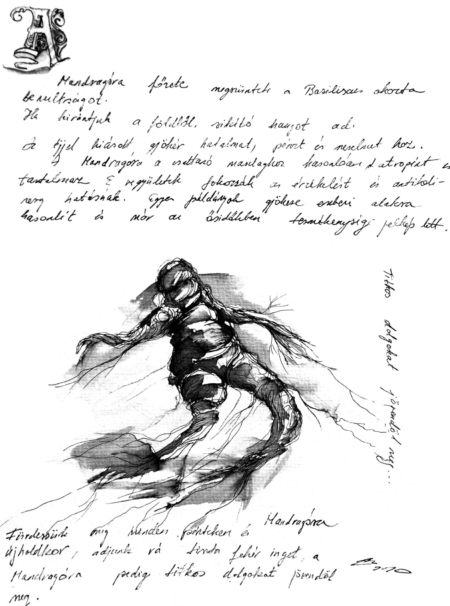 A
Mandragóra főzete megszünteti a Basiliscus okozta
bénultságot.
Ha kirántjuk a földből, sikító hangot ad.
Az éjjel kiásott gyökér hatalmat, pénzt és szerelmet hoz.
A Mandragóra a csattanó maszlaghoz hasonlóan atropint
tartalmaz. E vegyületek fokozzák az érzékelést és antikoli-
nerg hatásúak. Egyes példányok gyökere emberi alakra
hasonlít és már az ősidőkben termékenységi jelkép lett.
Titkos dolgokat jövendöl meg...
Fürdessük meg minden pénteken és
Mandragóra
újholdkor, adjunk rá tiszta fehér inget, a
Mandragóra pedig titkos dolgokat jövendöl
meg.